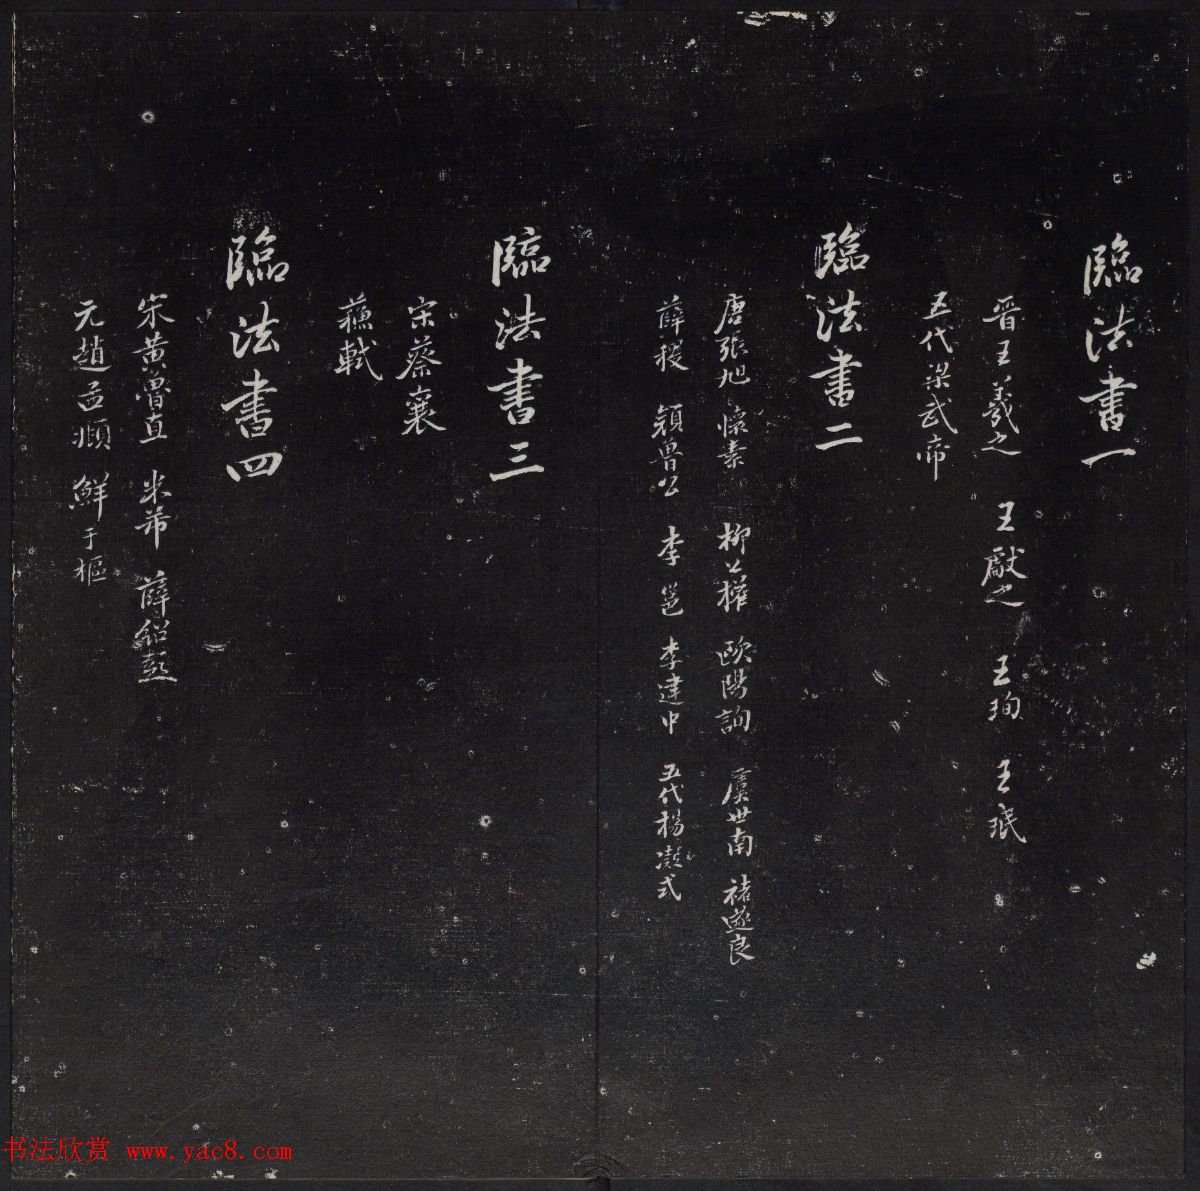 臨法書一
晋王羲之 王獻之 王珣 王珉
五代梁武帝
臨法書二
唐張旭 懷素 柳公權 歐陽詢 虞世南 褚遂良
薛稷 顏魯公 李邕 李建中 五代楊凝式
臨法書三
宋蔡襄
蘇軾
臨法書四
宋黃魯直 米芾 薛紹彭
元趙孟頫 鮮于樞
书法欣赏 www.yac8.com